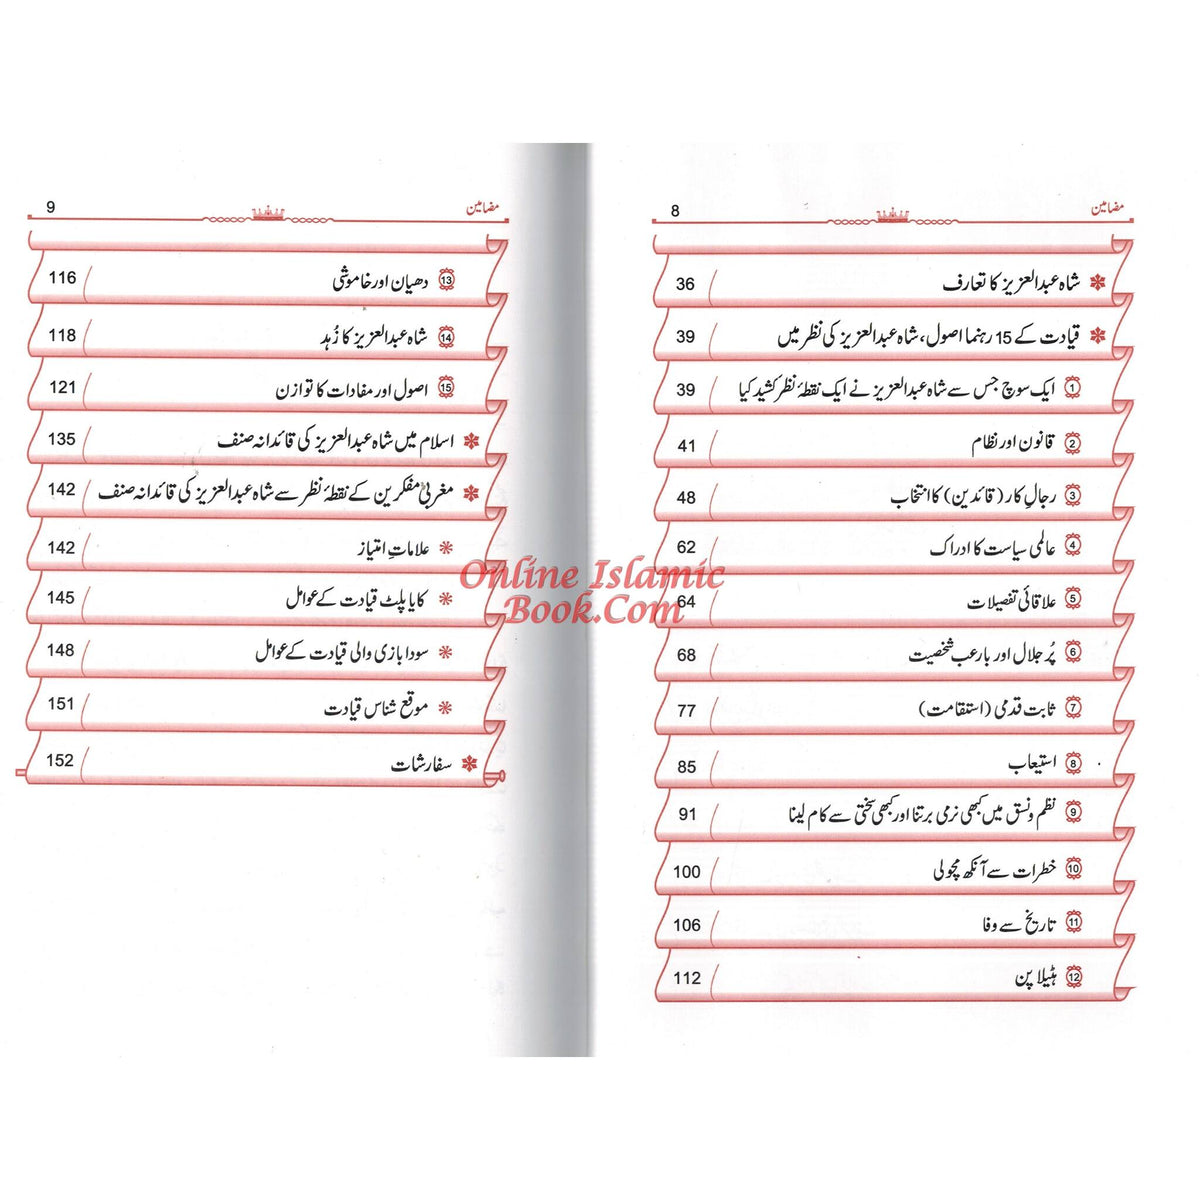 مضامین 8
شاہ عبدالعزیز کا تعارف 36
قیادت کے 15 رہنما اصول، شاہ عبدالعزیز کی نظر میں 39
1 ایک سوچ جس سے شاہ عبدالعزیز نے ایک نقطۂ نظر کشید کیا 39
2 قانون اور نظام 41
3 رجالِ کار (قائدین) کا انتخاب 48
4 عالمی سیاست کا ادراک 62
5 علاقائی تفصیلات 64
6 پُر جلال اور بارعب شخصیت 68
7 ثابت قدمی (استقامت) 77
8 استیعاب 85
9 نظم ونسق میں کبھی نرمی برتنا اور کبھی سختی سے کام لینا 91
10 خطرات سے آنکھ مچولی 100
11 تاریخ سے وفا 106
12 ہٹیلا پن 112
مضامین 9
13 دھیان اور خاموشی 116
14 شاہ عبدالعزیز کا زُہد 118
15 اصول اور مفادات کا توازن 121
اسلام میں شاہ عبدالعزیز کی قائدانہ صنف 135
مغربی مفکرین کے نقطۂ نظر سے شاہ عبدالعزیز کی قائدانہ صنف 142
علاماتِ امتیاز 142
کایا پلٹ قیادت کے عوامل 145
سودا بازی والی قیادت کے عوامل 148
موقع شناس قیادت 151
سفارشات 152
Online Islamic
Book.Com